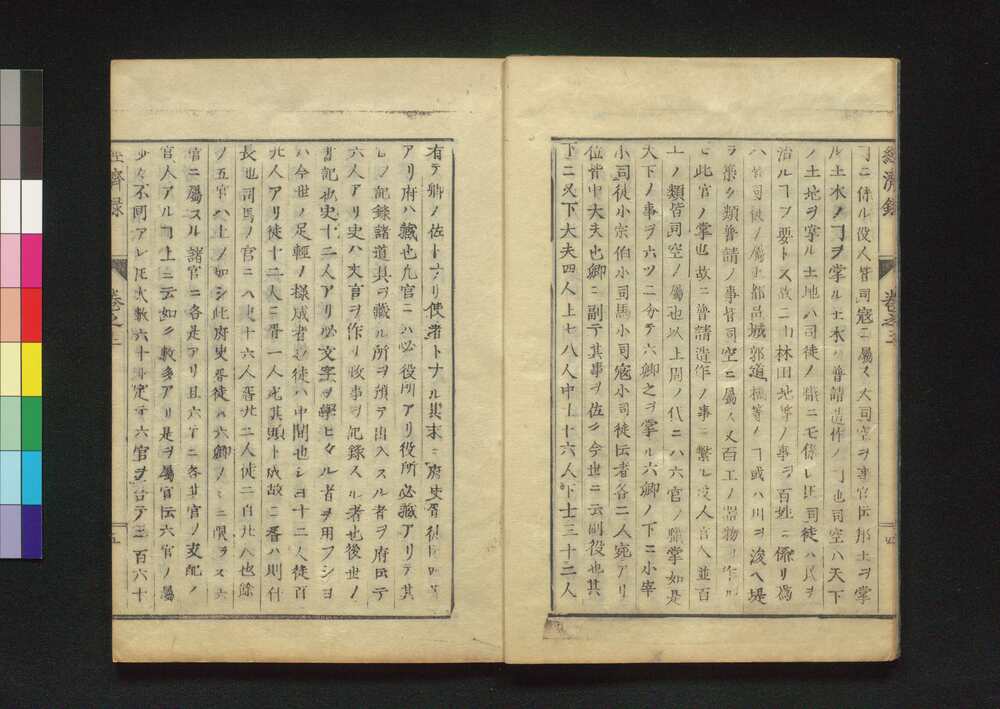 經濟録 卷之三 四
ヿニ係ル役人皆司寇ニ屬ス大司空ヲ事官伝邦土ヲ掌
ル土木ノヿヲ掌ル土木ハ普請造作ノヿ也司空ハ天下
ノ土地ヲ掌ル土地ハ司徒ノ職ニモ係レ𪜈司徒ハ民ヲ
治ルヿヲ要トス故ニ山林田地等ノ事ヲ百姓ニ係リ爲
ハ皆司徒ノ屬也都邑城郭道橋等ノヿ或ハ川ヲ浚ヘ堤
ヲ築ク類普請ノ事皆司空ニ屬ス又百工ノ器物ヲ作ル
モ此官ノ掌也故ニ普請造作ノ事ニ繋レ役人官人並百
工ノ類皆司空ノ屬也以上周ノ代ニハ六官ノ職掌如是
天下ノ事ヲ六ツニ分テ六卿之ヲ掌ル六卿ノ下ニ小宰
小司徒小宗伯小司馬小司寇小司徒伝者各二人宛アリ
位皆中大夫也卿ニ副テ其事ヲ佐ク今世ニ云副役也其
下ニ又下大夫四人上士八人中士十六人下士三十二人
有テ卿ノ佐トナリ使者トナル其末ニ府史胥徒伝四等
アリ府ハ藏也九官ニハ必役所アリ役所必藏アリテ其
ヒノ記録諸道具ヲ藏ル所ヲ預テ出入スル者ヲ府伝テ
六人アリ史ハ文言ヲ作リ政事ヲ記録スル者也後世ノ
書記也史十二人アリ必文字ヲ學ヒタル者ヲ用フシヨ
ハ今世ノ足輕ノ様成者也徒ハ中間也シヨ十二人徒百
廿人アリ徒十二人ニ胥一人充其頭ト成故ニ胥ハ則什
長也司馬ノ官ニハ史十六人胥卅二人徒三百廿八也餘
ノ五官ハ上ノ如シ此府史胥徒ハ六卿ノミニ限ラス六
官ニ屬スル諸官ニ各是アリ且六官ニ各其官ノ支配ノ
官人アルヿ上ニ云如ク數多アリ是ヲ屬官伝六官ノ屬
少々不同アレ𪜈大數六十ト定テ六官ヲ合テ三百六十
經濟録 卷之三 五